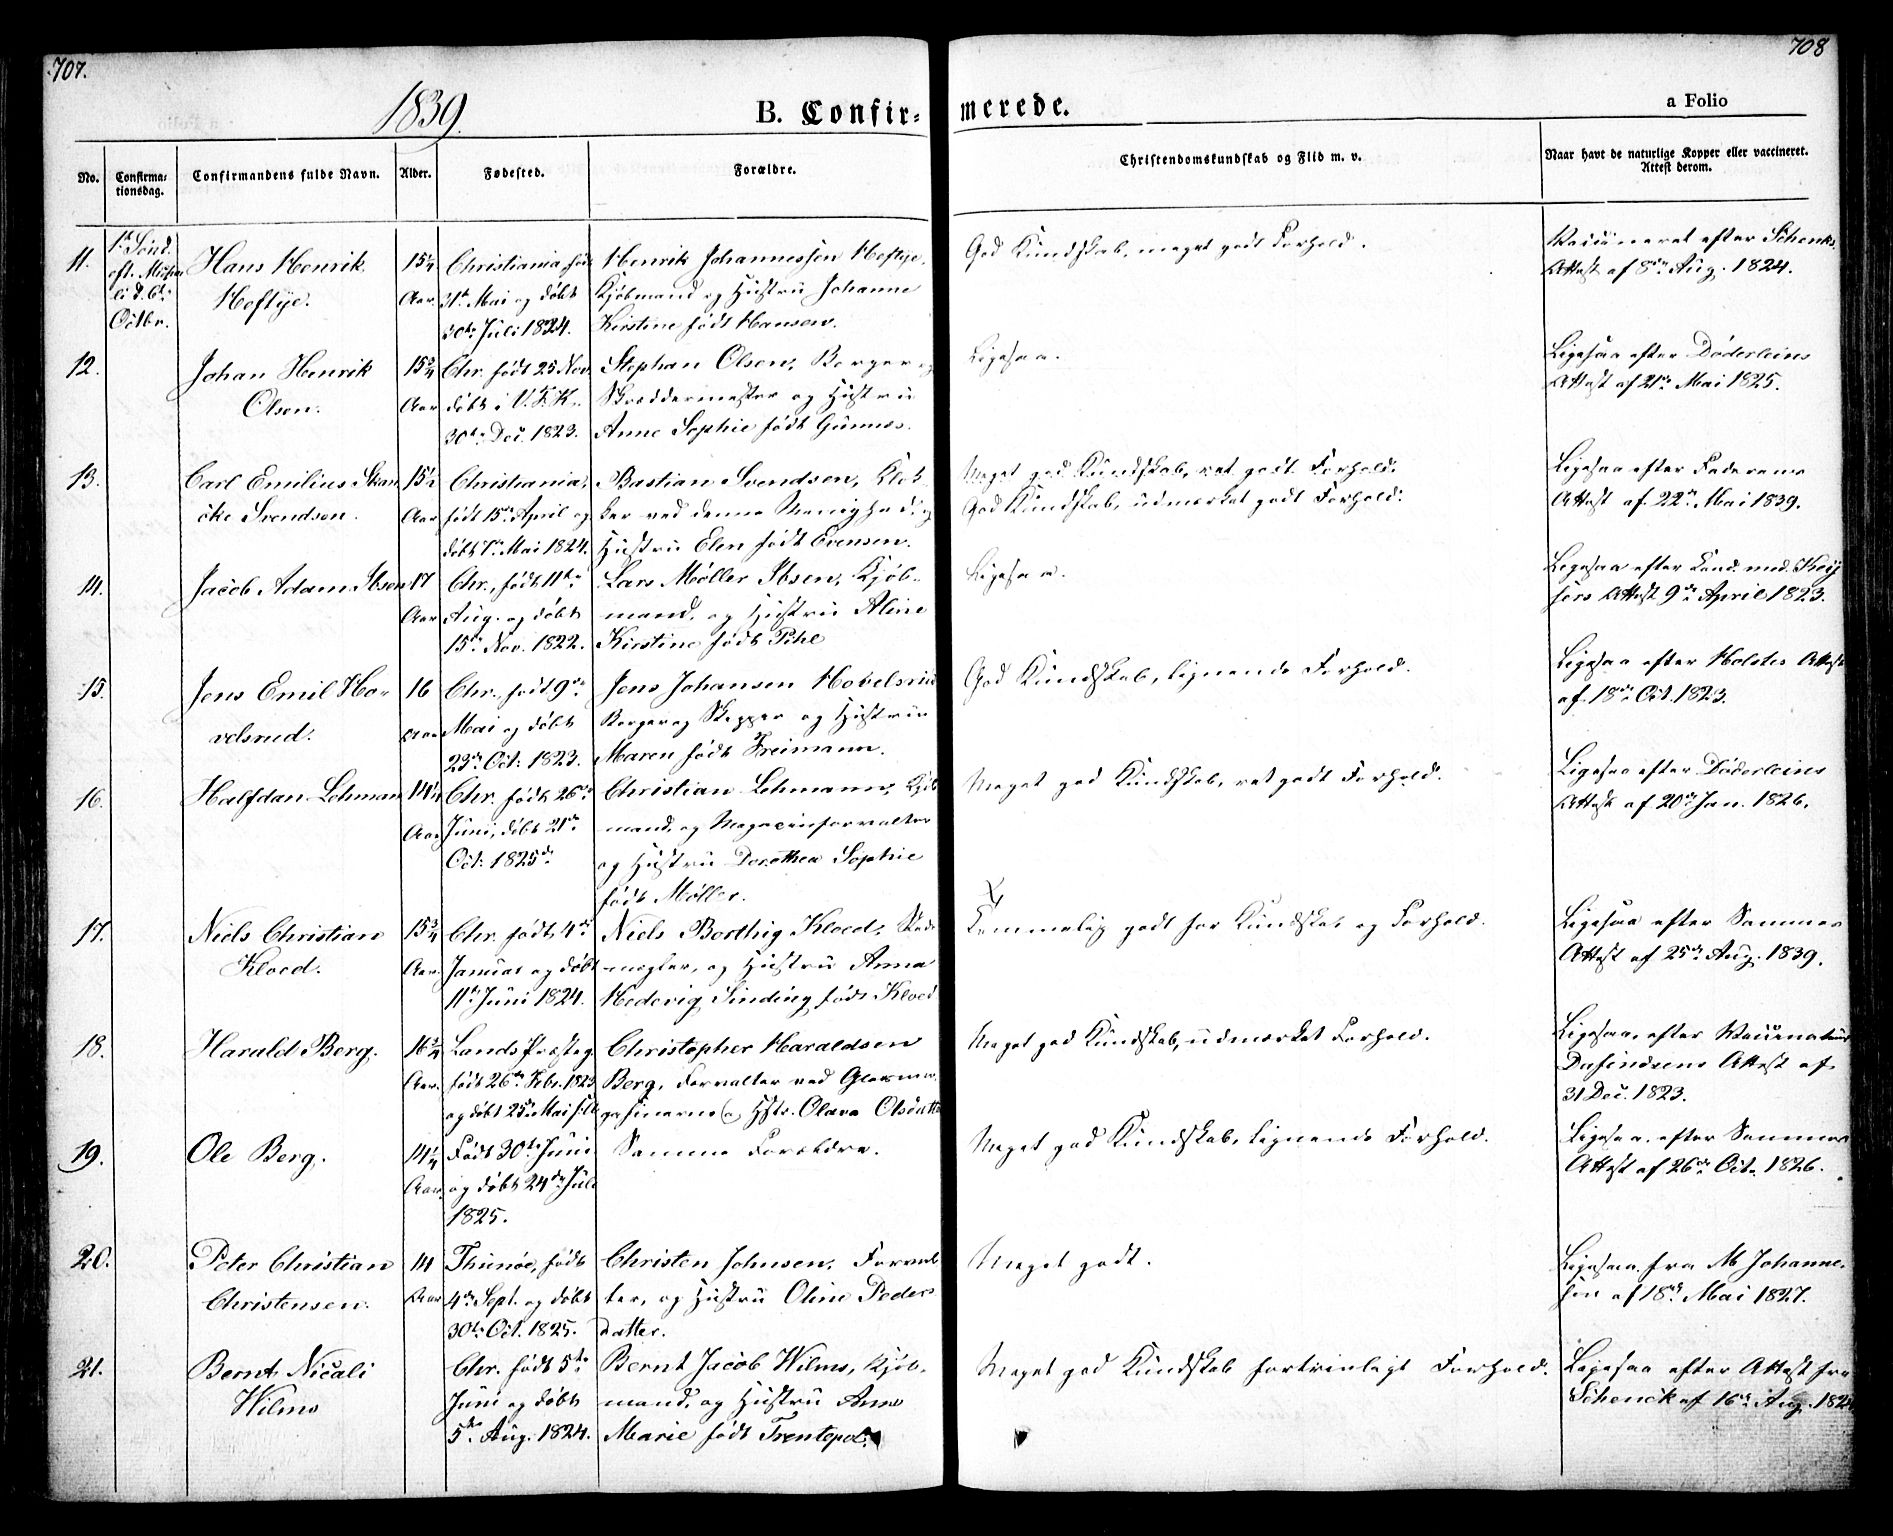 707.
708
1839.
B. Confir-
merede.
a Folio
No.
Confirma-
tionsdag.
Confirmandens fulde Navn.
Alder.
Fødested.
Forældre.
Christendomskundskab og Flid m. v.
Naar havt de naturlige Kopper eller vaccineret.
Attest derom.
11.
1ste Sönd.
eft. Micha
eli d. 6te
Octbr.
Hans Henrik
Heftye.
15¼
Aar
Christiania, født
31te Mai og döbt
30te Juli 1824.
Henrik Johannessen Heftye,
Kjöbmand og Hustru Johanne
Kirstine født Hansen.
God Kundskab, meget godt Forhold.
Vaccineret efter Schenks
Attest af 8de Aug. 1824.
12.
Johan Henrik
Olsen.
15¾
Aar
Chr. født 25 Nov.
döbt i V. F. K.
30te Dec. 1823.
Stephan Olsen, Borger og
Skræddermester og Hustru
Anne Sophie født Gunnes.
Ligesaa.
Ligesaa efter Döderleins
Attest af 21de Mai 1825.
13.
Carl Emilius Skan
cke Svendsen.
15½
Aar
Christiania,
født 15de April og
döbt 7de Mai 1824.
Bastian Svendsen, Klok-
ker ved denne Menighed, og
Hustru Elen født Evensen.
Meget god Kundskab, ret godt Forhold.
God Kundskab, udmærket godt Forhold.
Ligesaa efter Faderens
Attest af 22de Mai 1839.
14.
Jacob Adam Ibsen
17
Aar
Chr., født 11te
Aug. og döbt
15de Nov. 1822.
Lars Møller Ibsen, Kjöb-
mand, og Hustru Aline
Kirstine født Pihl
Ligesaa.
Ligesaa efter Cand. med. Keis
sers Attest 9de April 1823.
15.
Jens Emil Ho-
velsrud.
16
Aar
Chr., født 9de
Mai og döbt
23de Oct. 1823.
Jens Johansen Hovelsrud
Borger og Skipper og Hustru
Maren født Freimann.
God Kundskab, lignende Forhold.
Ligesaa efter Holstes Attest
af 18de Oct. 1823.
16.
Halfdan Lehman
14¼
Aar
Chr. født 26de
Juni, döbt 21de
Oct. 1825
Christian Lehmann, Kjöb
mand, og Magazinforvalter
og Hustru Dorothea Sophie
født Møller.
Meget god Kundskab, ret godt Forhold.
Ligesaa efter Döderleins
Attest af 20de Jan. 1826.
17.
Niels Christian
Kloed.
15¾
Aar.
Chr. født 4de
Januar og döbt
11te Juni 1824.
Niels Berthig Kloed, Stads
mægler, og Hustru Anna
Hedevig Sinding født Kloed
Temmelig godt for Kundskab og Forhold.
Ligesaa efter Sammes
Attest af 25de Aug. 1839.
18.
Harald Berg.
16¾
Aar.
Lands Præsteg.
født 26de Febr. 1823
og döbt 25de Mai
Christopher Haraldsen
Berg, Forvalter ved Glasma
gasinerne og Hstr. Olava Olsdatter
Meget god Kundskab, udmærket Forhold.
Ligesaa, efter Vaccinateur
Attest af
31 Dec. 1823.
19.
Ole Berg.
14¼
Aar.
Født 30te Juni
og döbt 24de Juli
1825.
Samme Forældre.
Meget god Kundskab, lignende Forhold.
Ligesaa, efter Sammes
Attest af 26de Oct. 1826.
20.
Peter Christian
Christensen.
14
Aar
Thunøe, født
4de Sept. og döbt
30te Oct. 1825.
Christen Johnsen, Forval
ter, og Hustru Oline Peders
datter.
Meget godt.
Ligesaa fra M Johanne-
sen af 18de Mai 1827.
21.
Bernt Nicali
Wilms
Chr. født 5te
Juni og döbt
5te Aug. 1824.
Bernt Jacob Wilms, Kjöb-
mand, og Hustru Anne
Marie født Trentepol.
Meget god Kundskab fortrinligt Forhold.
Ligesaa efter Attest fra
Schenck af 16de Aug. 1824